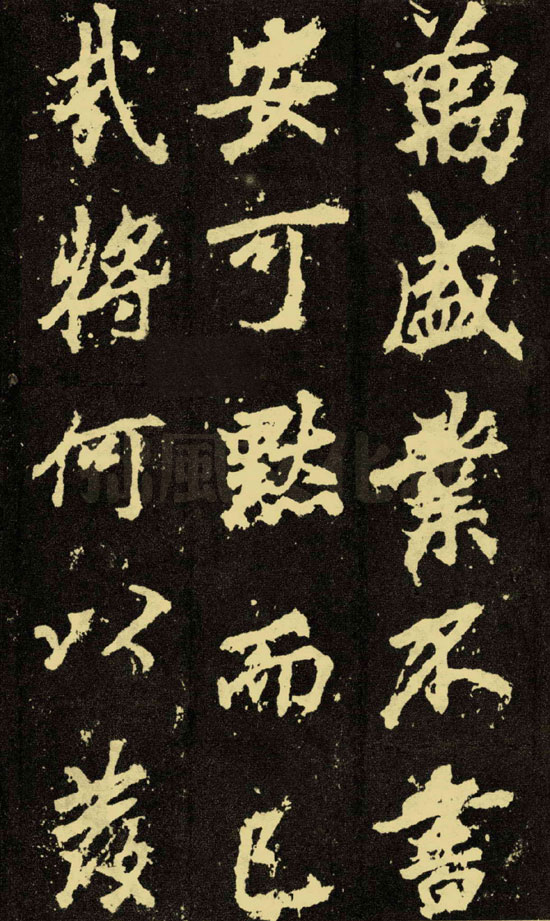 勤盛業不書
安可默而已
哉將何以發